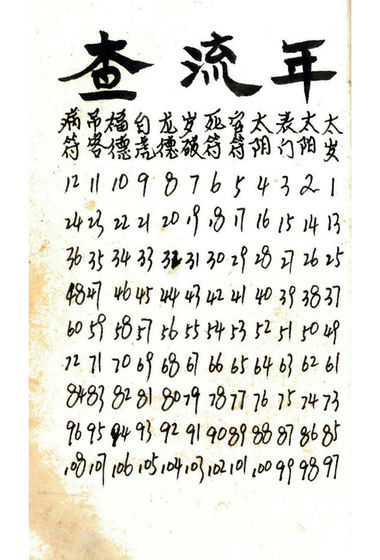 查流年
病吊福白龙岁死官太丧太太
符客德虎德破符符阴门阳岁
12 11 10 9 8 7 6 5 4 3 2 1
24 23 22 21 20 19 18 17 16 15 14 13
36 35 34 33 32 31 30 29 28 27 26 25
48 47 46 45 44 43 42 41 40 39 38 37
60 59 58 57 56 55 54 53 52 51 50 49
72 71 70 69 68 67 66 65 64 63 62 61
84 83 82 81 80 79 78 77 76 75 74 73
96 95 94 93 92 91 90 89 88 87 86 85
108 107 106 105 104 103 102 101 100 99 98 97